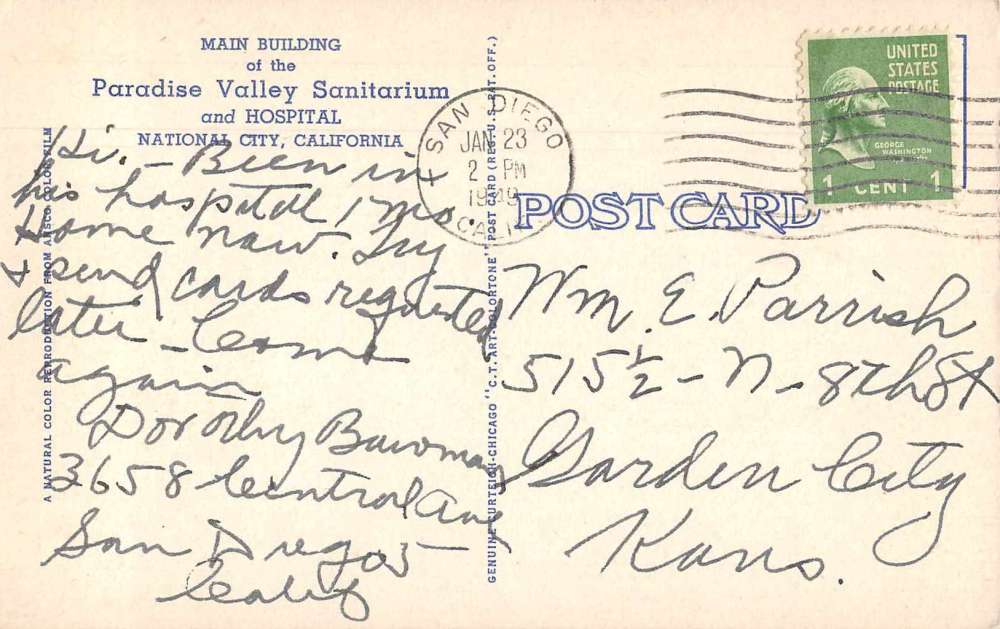 MAIN BUILDING
of the
Paradise Valley Sanitarium
and HOSPITAL
NATIONAL CITY, CALIFORNIA
Hi. - Been in
his hospital 1 mo.
Home now. Try
& send cards requested
later - Come
again
Dorothy Bowman
3658 Central Ave
San Diego 5
Calif
A NATURAL COLOR REPRODUCTION FROM ANSCO COLOR FILM
GENUINE CURTEICH-CHICAGO "C.T. ART-COLORTONE" POST CARD (REG. U.S. PAT. OFF.)
SAN DIEGO
JAN 23
2 PM
CALIF.
UNITED
STATES
POSTAGE
GEORGE
WASHINGTON
1 CENT 1
POST CARD
Wm. E. Parrish
515 1/2 - N - 8th St
Garden City
Kans.